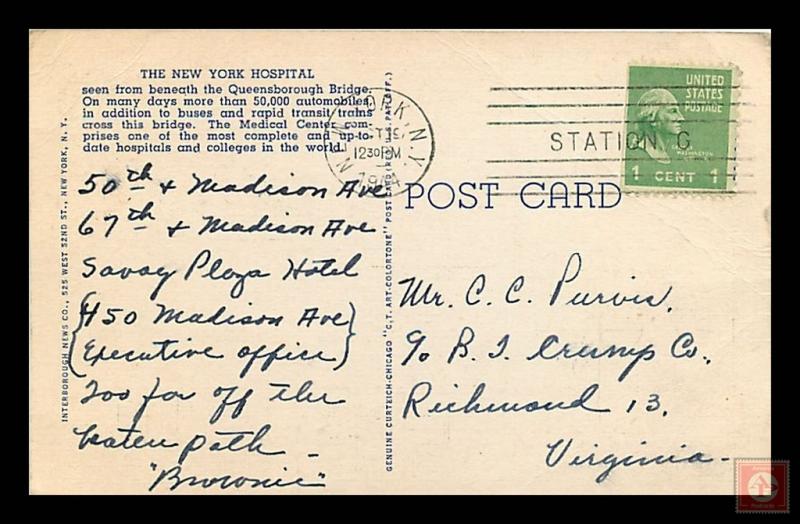 THE NEW YORK HOSPITAL
seen from beneath the Queensborough Bridge.
On many days more than 50,000 automobiles,
in addition to buses and rapid transit trains
cross this bridge. The Medical Center com-
prises one of the most complete and up-to-
date hospitals and colleges in the world.
50th + Madison Ave
67th + Madison Ave
Savoy Plaza Hotel
{450 Madison Ave}
{Executive office}
Too far off the
beaten path -
"Brownie"
INTERBOROUGH NEWS CO., 525 WEST 52ND ST., NEW YORK, N. Y.
GENUINE CURTEICH-CHICAGO "C.T. ART-COLORTONE" POST CARD (REG. U.S. PAT. OFF.)
NEW YORK, N.Y.
12 30 PM
STATION G
UNITED
STATES
POSTAGE
WASHINGTON
1 CENT 1
POST CARD
Mr. C. C. Purvis,
c/o B. T. Crump Co.,
Richmond 13,
Virginia -